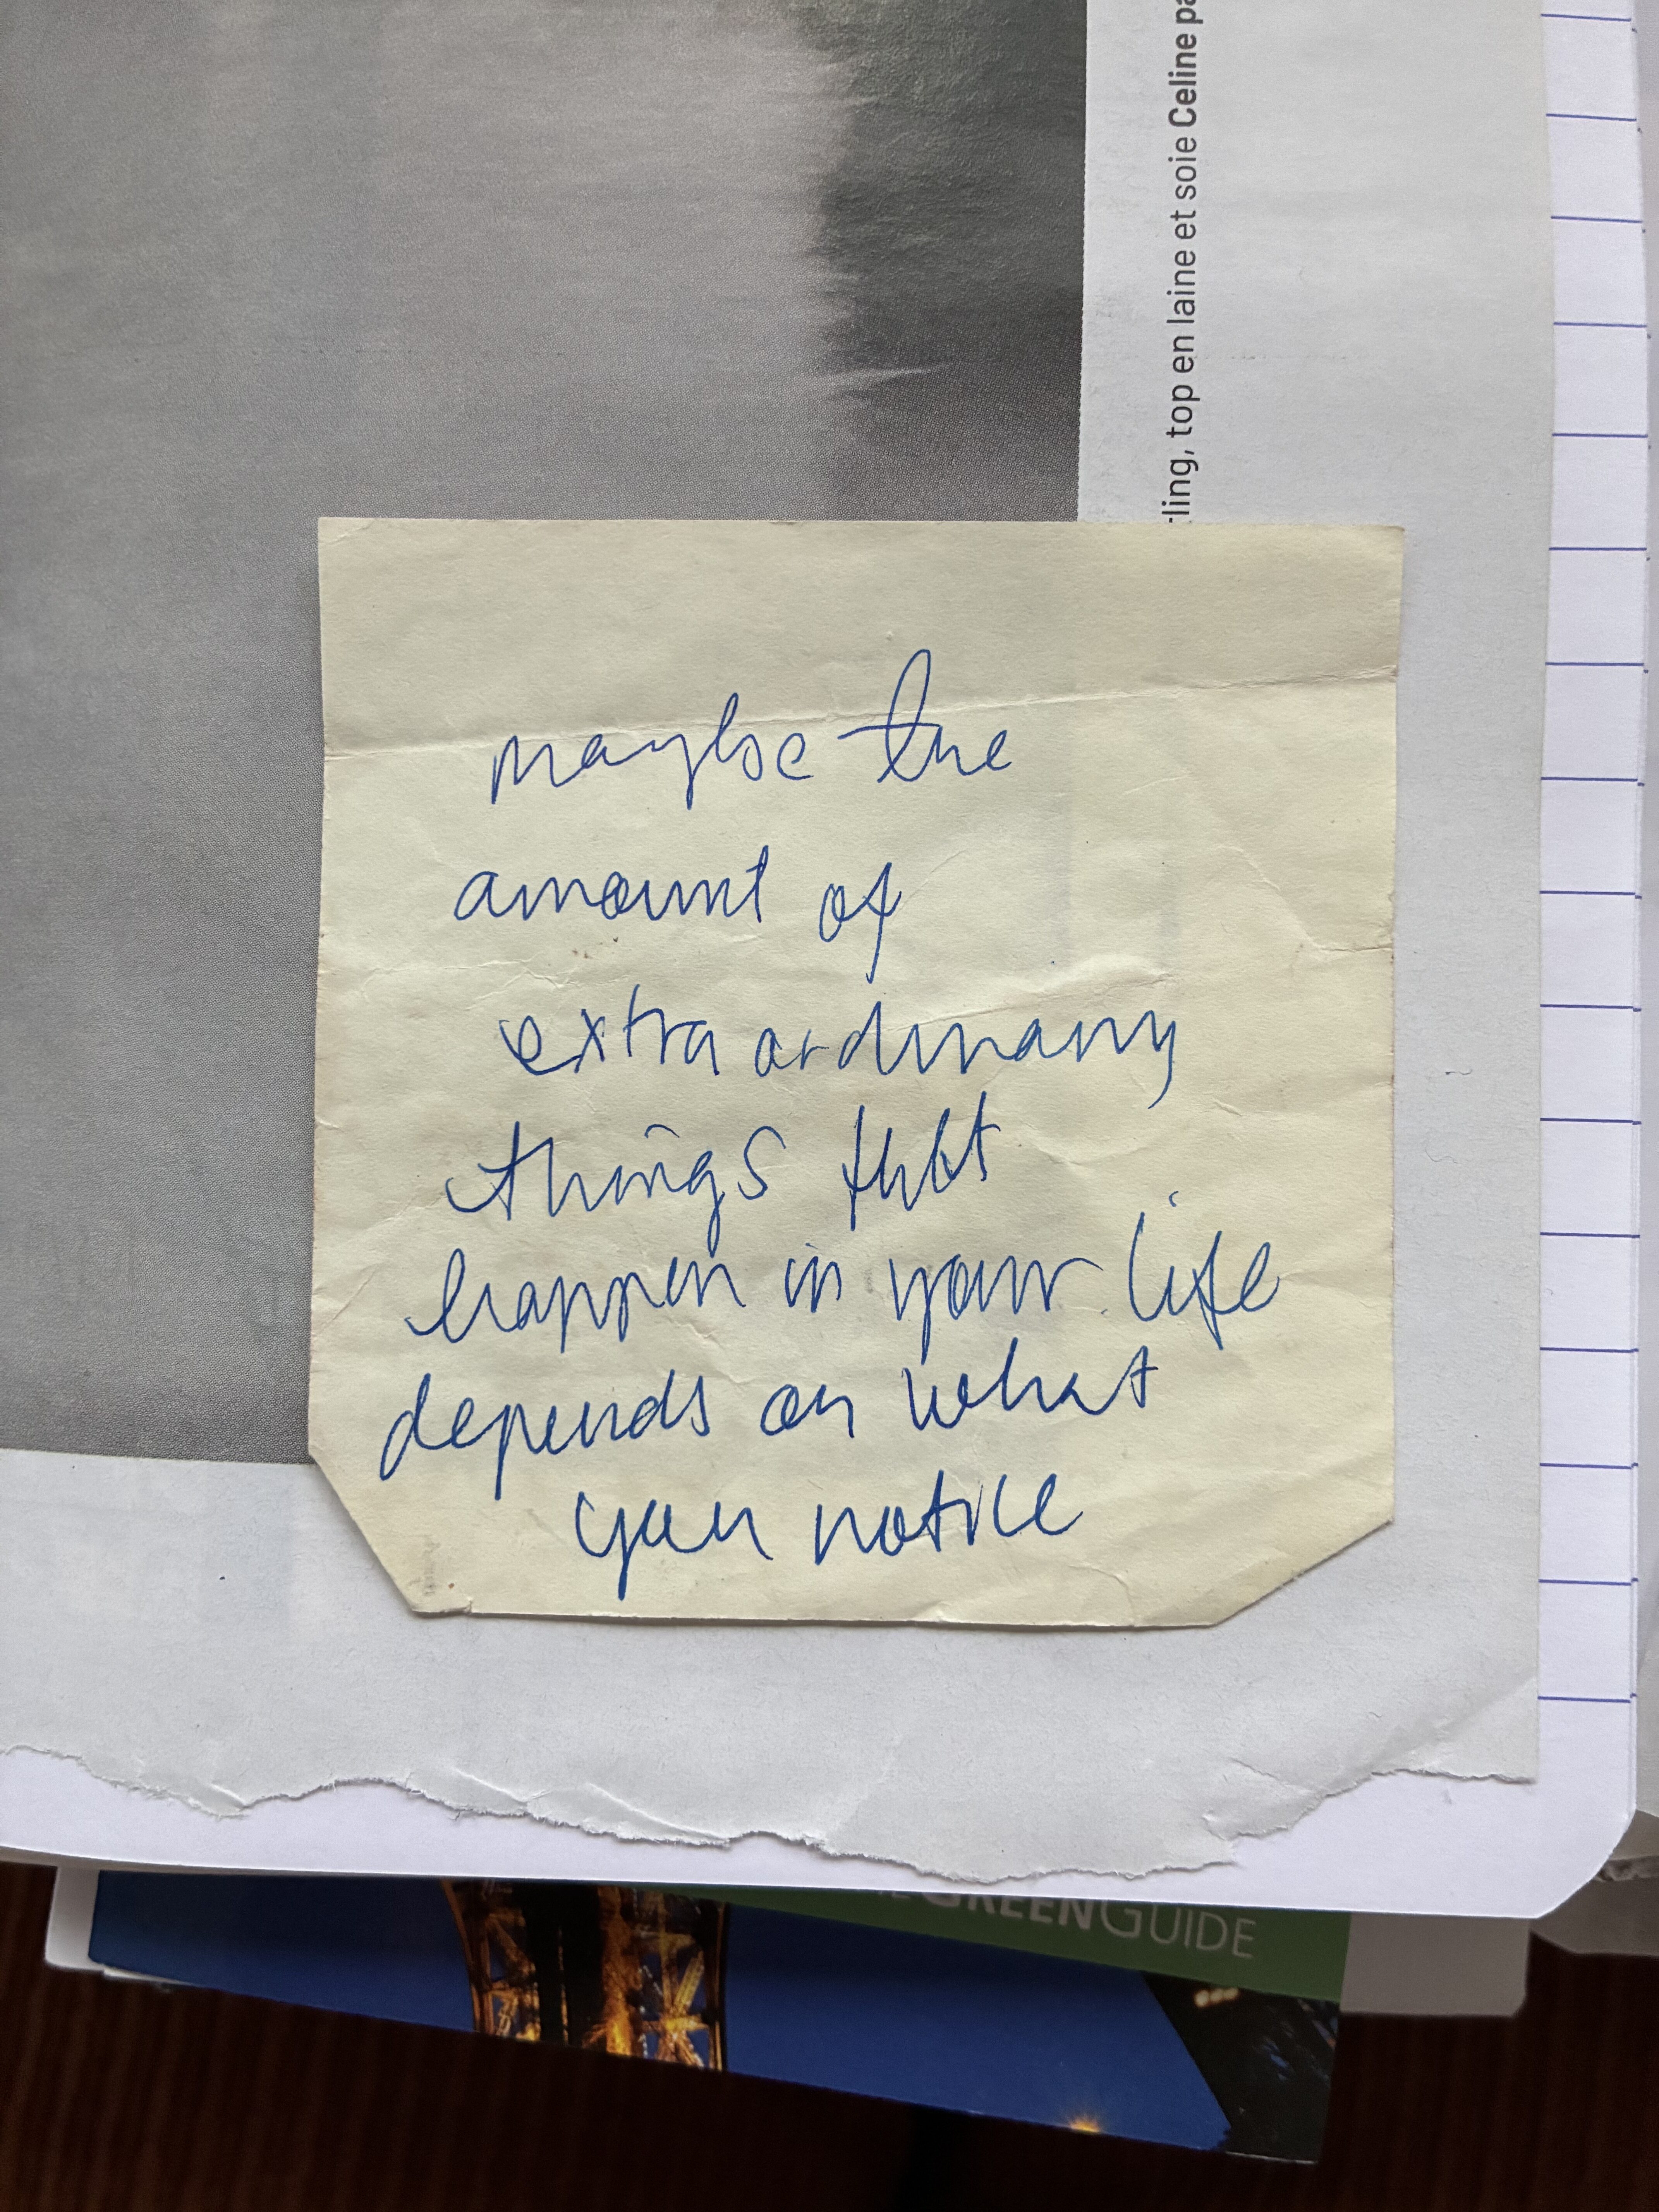 tling, top en laine et soie Celine pa
maybe the
amount of
extra ordinary
things that
happen in your life
depends on what
you notice
GREENGUIDE